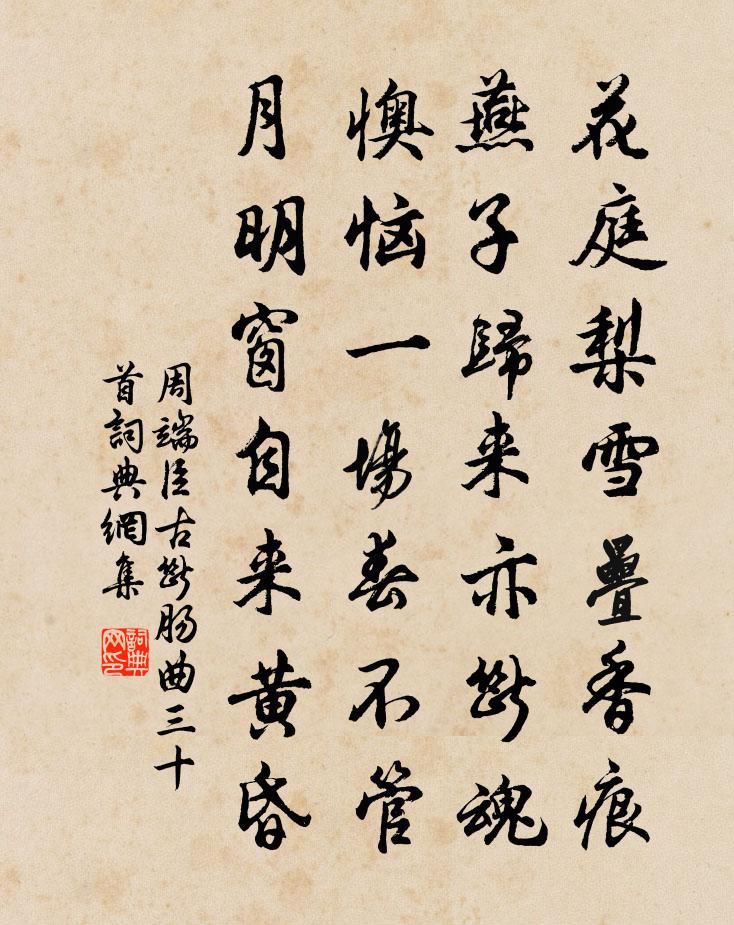 花庭梨雪疊香痕
燕子歸来亦斷魂
懊恼一場春不管
月明窗自来黃昏
周端臣古斷肠曲三十
首詞典網集
詞典网印